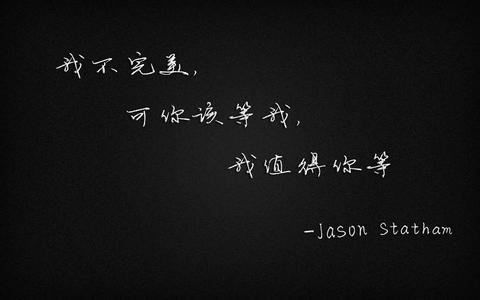 我不完美，
可你该等我，
我值得你等
-Jason Statham